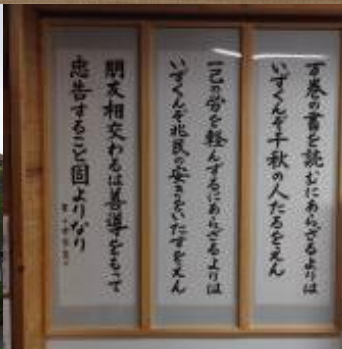 万巻の書を読むにあらざるよりは
いずくんぞ千秋の人たるをえん
一己の労を軽んずるにあらざるよりは
いずくんぞ兆民の安きをいたすをえん
朋友相交わるは善導をもって
忠告すること固よりなり